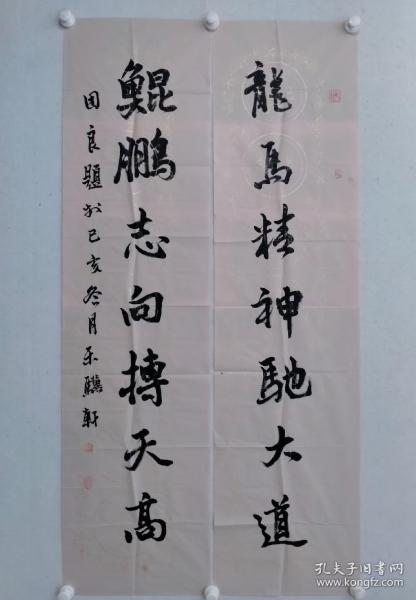 龍馬精神馳大道
鯤鵬志向摶天高
田良題於己亥冬月禾驥軒
孔夫子旧书网
www.kongfz.com